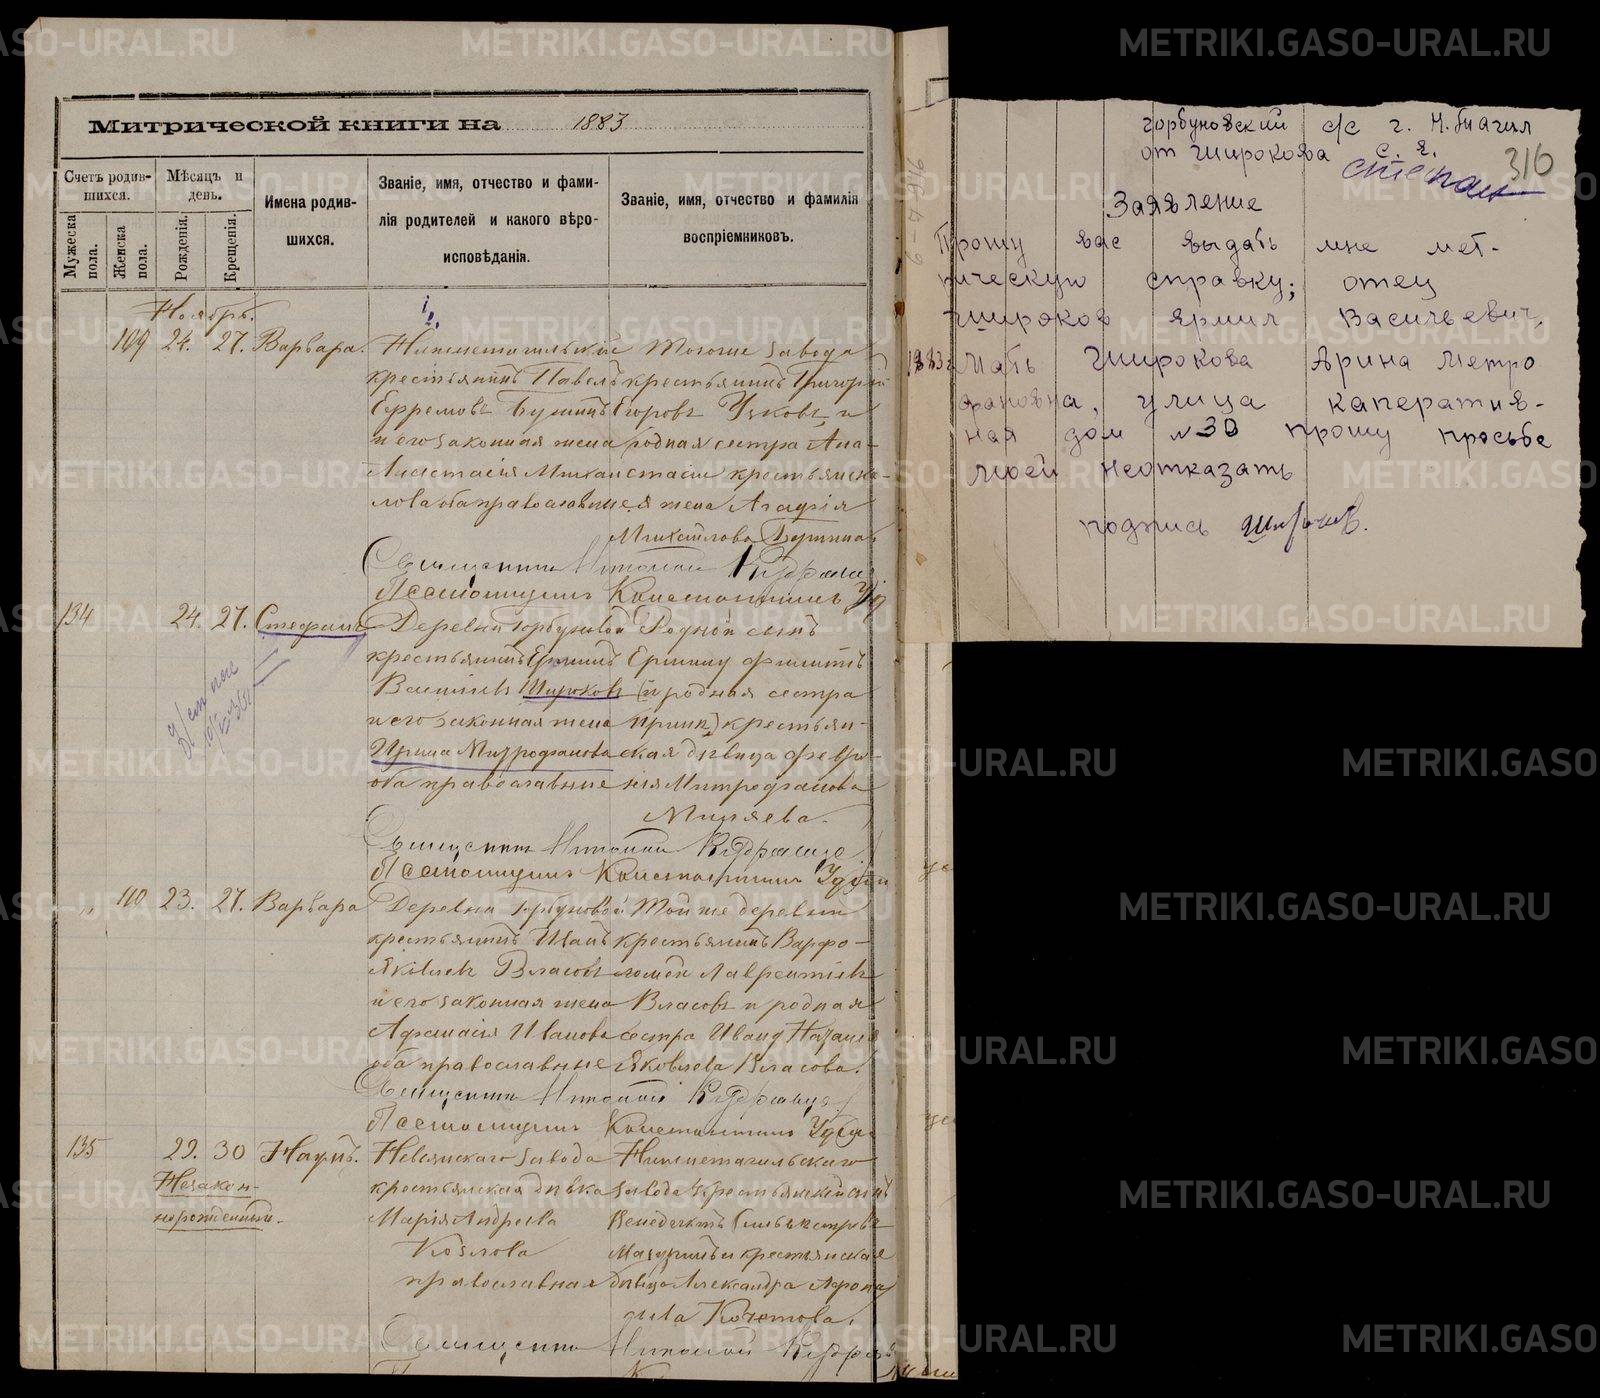 Митрической книги на 1883
Счетъ родив-
шихся.
Мужеска
пола.
Женска
пола.
Мѣсяцъ и
день.
Рожденія.
Крещенія.
Имена родив-
шихся.
Званіе, имя, отчество и фами-
лія родителей и какого вѣро-
исповѣданія.
Званіе, имя, отчество и фамилія
воспріемниковъ.
Ноябрь.
109 24. 27. Варвара.
Нижнетагильскіе
крестьянинъ Павелъ
Ефремовъ Бушинъ
и его законная жена
Анастасія Михаи
лова оба православные
Тогоже завода
крестьянинъ Григорій
Егоровъ Усковъ и
родная сестра Ана-
стасіи крестьянска-
я жена Агафія
Михайлова Бушина
Священникъ Николай
Псаломщикъ Константинъ
134 24. 27. Стефанъ
Деревни Горбуновой
крестьянинъ Ермилъ
Васильевъ Широковъ
и его законная жена
Ирина Митрофанова
оба православные
Родной сынъ
Ермилу Филипъ
(и родная сестра
Ирины) крестьян-
ская дѣвица Февро-
нія Митрофанова
Миляева.
Священникъ Николай
Псаломщикъ Константинъ
„ 110 23. 27. Варвара
Деревни Горбуновой
крестьянинъ Иванъ
Яковлевъ Власовъ
и его законная жена
Афанасія Иванова
оба православные
Той же деревни
крестьянинъ Варфо-
ломей Лаврентіевъ
Власовъ и родная
сестра Ивану Наталія
Яковлева Власова.
Священникъ Николай
Псаломщикъ Константинъ
135 29. 30 Наумъ.
Незакон-
норожденный.
Невьянскаго завода
крестьянская дѣвка
Марія Андреева
Козлова
православная
Нижнетагильскаго
завода крестьянскій сынъ
Венедиктъ Сильвестровъ
Мазуринъ и крестьянская
дѣвица Александра Афона
сіева Кочетова.
Священникъ Николай
316
Горбуновский с/с г. Н. Тагил
от Широкова С. Я.
Степан
Заявление
Прошу вас выдать мне мет-
рическую справку; отец
Широков Ярмил Васильевич,
1883г Мать Широкова Арина Метро
фановна, улица каператив-
ная дом №30 прошу просьбе
моей неотказать
подпись Широков.
METRIKI.GASO-URAL.RU